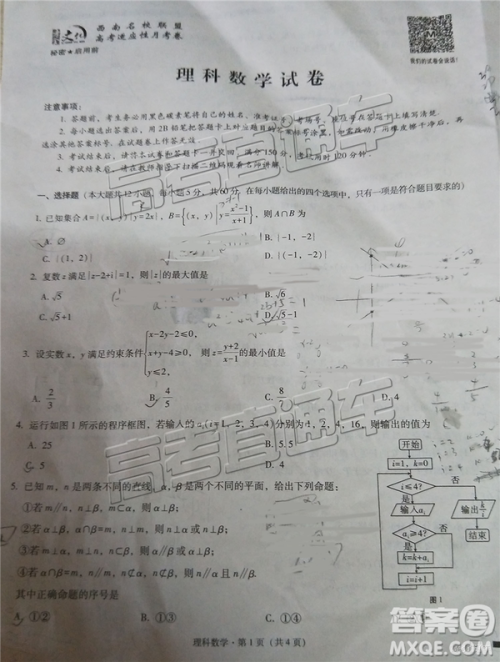 西南名校联盟
高考适应性月考卷
秘密★启用前
理科数学试卷
注意事项：
1. 答题前，考生务必用黑色碳素笔将自己的姓名、准考证号、考场号、座位号在答题卡上填写清楚。
2. 每小题选出答案后，用2B铅笔把答题卡上对应题目的答案标号涂黑，
选涂其他答案标号.在试题卷上作答无效.
3. 考试结束后，请将本试卷和答题卡一并交回. 满分150分，考试用时120分钟.
4. 考试结束后，
一、选择题（本大题共12小题，每小题5分，共60分. 在每小题给出的四个选项中，只有一项是符合题目要求的）
1. 已知集合A={(x, y)|y=2x}，B={(x, y)|y=(x²-1)/(x+1)}，则A∩B为
A. ∅
B. {-1, -2}
C. {(1, 2)}
D. {(-1, -2)}
2. 复数z满足|z-2+i|=1，则|z|的最大值是
A. √5
B. √6
C. √5+1
D. √5-1
3. 设实数x，y满足约束条件{x-2y-2≤0, x+y-4≥0, 则z=(y+2)/(x-1)的最小值是
A. 2/3
B. 4/5
D. 4
4. 运行如图1所示的程序框图，若输入的aᵢ(i=1，2，3，4)分别为1，2，4，16，则输出的值为
A. 25
B. 5.5
C. 5
D. 4
5. 已知m，n是两条不同的直线，α，β是两个不同的平面，给出下列命题：
①若m∥n，n⊥β，m⊂α，则α⊥β；
②若α⊥β，α∩β=m，n⊥m，则n⊥α或n⊥β；
③若m⊥α，m⊥n，n⊂β，则α∥β或α⊥β；
④若α∩β=m，n∥m，n⊄α，n⊄β，则n∥α且n∥β.
其中正确命题的序号是
A. ①②
B. ①③
D. ②④
开始
i=1，k=0
i≤4?
是
否
输入aᵢ
aᵢ≥4?
是
否
k=k+aᵢ
i=i+1
输出k/i
结束
图1
理科数学·第1页（共4页）
高考直通车
高考直通车
答案圈
MXQE.COM